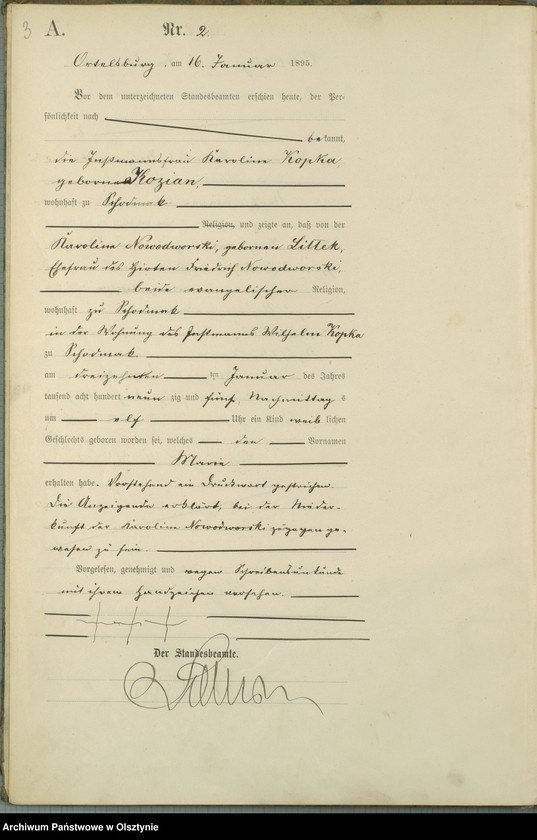 3 A. Nr. 2
Ortelsburg, am 16. Januar 1895.
Vor dem unterzeichneten Standesbeamten erschien heute, der Per-
sönlichkeit nach
bekannt,
die Instmannsfrau Karoline Kopka,
geborene Kozian,
wohnhaft zu Schodmak
Religion, und zeigte an, daß von der
Karoline Nowodworski, geborenen Littek,
Ehefrau des Hirten Friedrich Nowodworski,
beide evangelischer Religion,
wohnhaft zu Schodmak
in der Wohnung des Instmanns Wilhelm Kopka
zu Schodmak
am dreizehnten ten Januar des Jahres
tausend acht hundert neun zig und fünf, Nachmittag s
um elf Uhr ein Kind weib lichen
Geschlechts geboren worden sei, welches den Vornamen
Marie
erhalten habe. Vorstehend ein Druckwort gestrichen.
Die Anzeigende erklärt, bei der Nieder-
kunft der Karoline Nowodworski zugegen ge-
wesen zu sein.
Vorgelesen, genehmigt und wegen Schreibensunkunde
mit ihrem Handzeichen versehen.
+++
Der Standesbeamte.
Archiwum Państwowe w Olsztynie